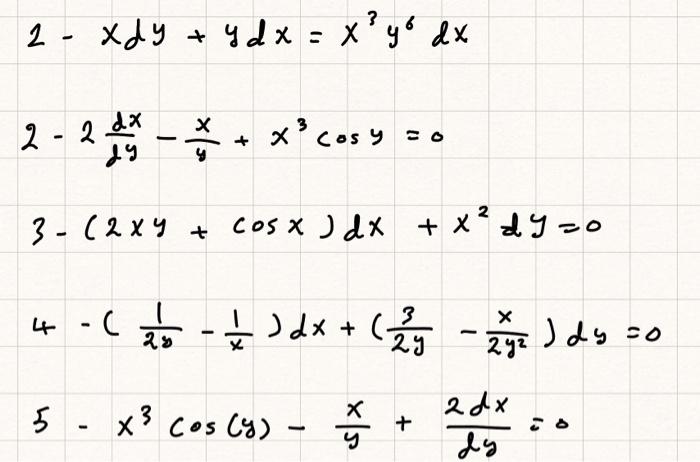 1 - xdy + ydx = x³y⁶ dx
2 - 2 dx/dy - x/y + x³ cos y = 0
3 - (2xy + cos x) dx + x² dy = 0
4 - (1/2y - 1/x) dx + (3/2y - x/2y²) dy = 0
5 - x³ cos(y) - x/y + 2dx/dy = 0